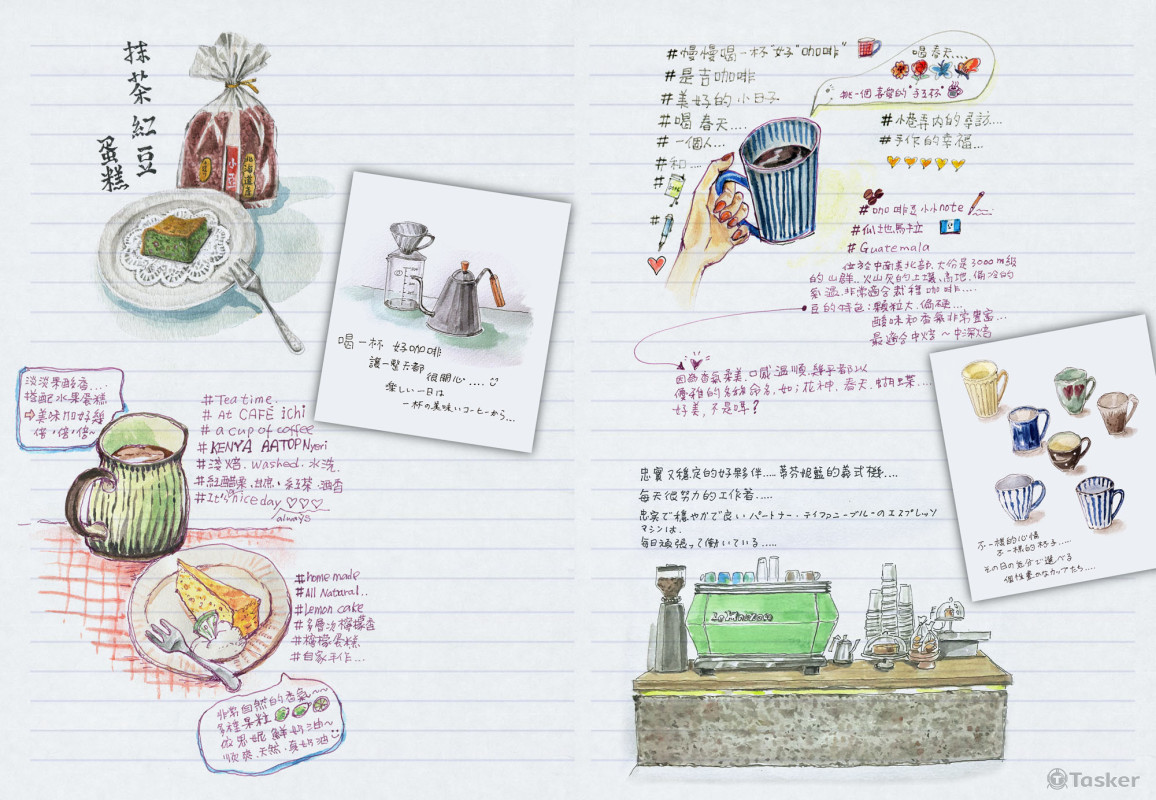 抹茶紅豆
蛋糕
喝一杯 好咖啡
讓一整天都
很開心....
楽しい一日は
一杯の美味いコーヒーから...
淡淡果酸香....
搭配水果蛋糕
⇨美味加好幾
倍,倍,倍~
#Tea time.
# At CAFÉ ichi
# a cup of coffee
# KENYA AATOP Nyeri
#淺焙.washed.水洗.
#It's nice day ♡♡♡
always
#home made
#All Natural..
#Lemon cake
#多層次檸檬香
#檸檬蛋糕
#自家手作...
非常自然的香氣~~
多種果粒
順爽.天然.真奶油
#慢慢喝一杯"好"咖啡"
#是吉咖啡
#美好的小日子
#喝春天....
#一個人...
#和....
#
#
喝春天....
挑一個喜愛的"手工杯"
#小巷弄內的尋訪....
#手作的幸福...
#咖啡豆小小note
#瓜地馬拉
#Guatemala
位於中南美北部.大份是3000m級
的山群.火山灰的土壤.高地.偏冷的
氣溫.非常適合栽種咖啡....
豆的特色:顆粒大.偏硬...
酸味和香氣非常豐富...
最適合中焙~中深焙
因為香氣柔美.口感溫順.幾乎都以
優雅的名稱命名.如:花神.春天.蝴蝶....
好美.不是嗎?
不一樣的心情
不一樣的杯子.....
その日の気分で選べる
個性豊かなカップたち....
忠實又穩定的好夥伴....蒂芬妮藍的義式機....
每天很努力的工作著.....
忠実で穏やかで良いパートナー・ティファニーブルーのエスプレッソ
マシンは.
毎日頑張って働いている.....
La Marzocco
Tasker